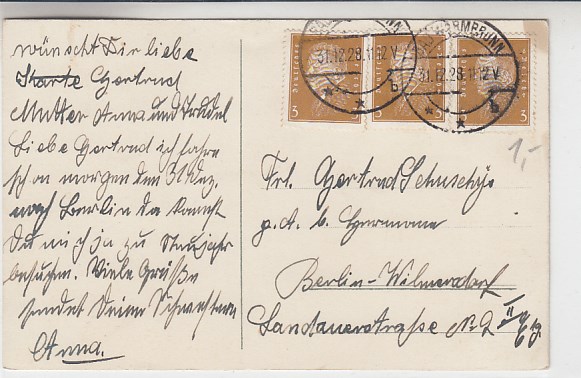 wünscht Dir liebe
Gertrud
Mutter Anna und Trudel
Liebe Gertrud ich fahre
schon morgen den 31 Dez.
nach Berlin da kannst
Du mich ja zu Neujahr
besuchen. Viele Grüße
sendet Deine Schwester
Anna.
WARMBRUNN
31.12.28.11-12 V
31.12.28.11-12 V
b
b
3
3
3
1,-
Frl. Gertrud
g. A. b. Hermann
Berlin-Wilmersdorf
Landauerstraße No 2 II